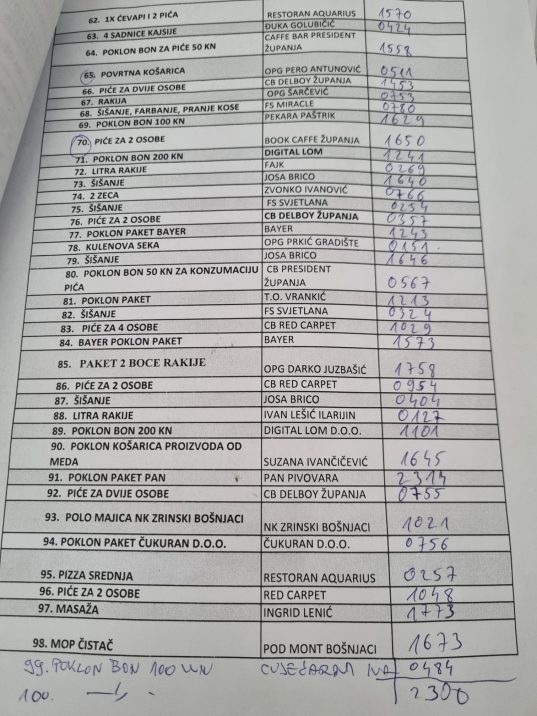 62. 1X ĆEVAPI I 2 PIĆA RESTORAN AQUARIUS 1570
63. 4 SADNICE KAJSIJE ĐUKA GOLUBIČIĆ 0424
64. POKLON BON ZA PIĆE 50 KN CAFFE BAR PRESIDENT ŽUPANJA 1558
65. POVRTNA KOŠARICA OPG PERO ANTUNOVIĆ 0511
66. PIĆE ZA DVIJE OSOBE CB DELBOY ŽUPANJA 1453
67. RAKIJA OPG ŠARČEVIĆ 0753
68. ŠIŠANJE, FARBANJE, PRANJE KOSE FS MIRACLE 0780
69. POKLON BON 100 KN PEKARA PAŠTRIK 1629
70. PIĆE ZA 2 OSOBE BOOK CAFFE ŽUPANJA 1650
71. POKLON BON 200 KN DIGITAL LOM 1241
72. LITRA RAKIJE FAJK 0269
73. ŠIŠANJE JOSA BRICO 1640
74. 2 ZECA ZVONKO IVANOVIĆ 0766
75. ŠIŠANJE FS SVJETLANA 0254
76. PIĆE ZA 2 OSOBE CB DELBOY ŽUPANJA 0357
77. POKLON PAKET BAYER BAYER 1243
78. KULENOVA SEKA OPG PRKIĆ GRADIŠTE 0151
79. ŠIŠANJE JOSA BRICO 1646
80. POKLON BON 50 KN ZA KONZUMACIJU CB PRESIDENT
PIĆA ŽUPANJA 0567
81. POKLON PAKET T.O. VRANKIĆ 1213
82. ŠIŠANJE FS SVJETLANA 0324
83. PIĆE ZA 4 OSOBE CB RED CARPET 1029
84. BAYER POKLON PAKET BAYER 1573
85. PAKET 2 BOCE RAKIJE OPG DARKO JUZBAŠIĆ 1758
86. PIĆE ZA 2 OSOBE CB RED CARPET 0954
87. ŠIŠANJE JOSA BRICO 0404
88. LITRA RAKIJE IVAN LEŠIĆ ILARIJIN 0127
89. POKLON BON 200 KN DIGITAL LOM D.O.O. 1101
90. POKLON KOŠARICA PROIZVODA OD
MEDA SUZANA IVANČIČEVIĆ 1645
91. POKLON PAKET PAN PAN PIVOVARA 2314
92. PIĆE ZA DVIJE OSOBE CB DELBOY ŽUPANJA 0755
93. POLO MAJICA NK ZRINSKI BOŠNJACI NK ZRINSKI BOŠNJACI 1021
94. POKLON PAKET ČUKURAN D.O.O. ČUKURAN D.O.O. 0756
95. PIZZA SREDNJA RESTORAN AQUARIUS 0257
96. PIĆE ZA 2 OSOBE RED CARPET 1048
97. MASAŽA INGRID LENIĆ 1773
98. MOP ČISTAČ POD MONT BOŠNJACI 1673
99. POKLON BON 100 KN CVJEĆARNA 0484
100. —||— 2300